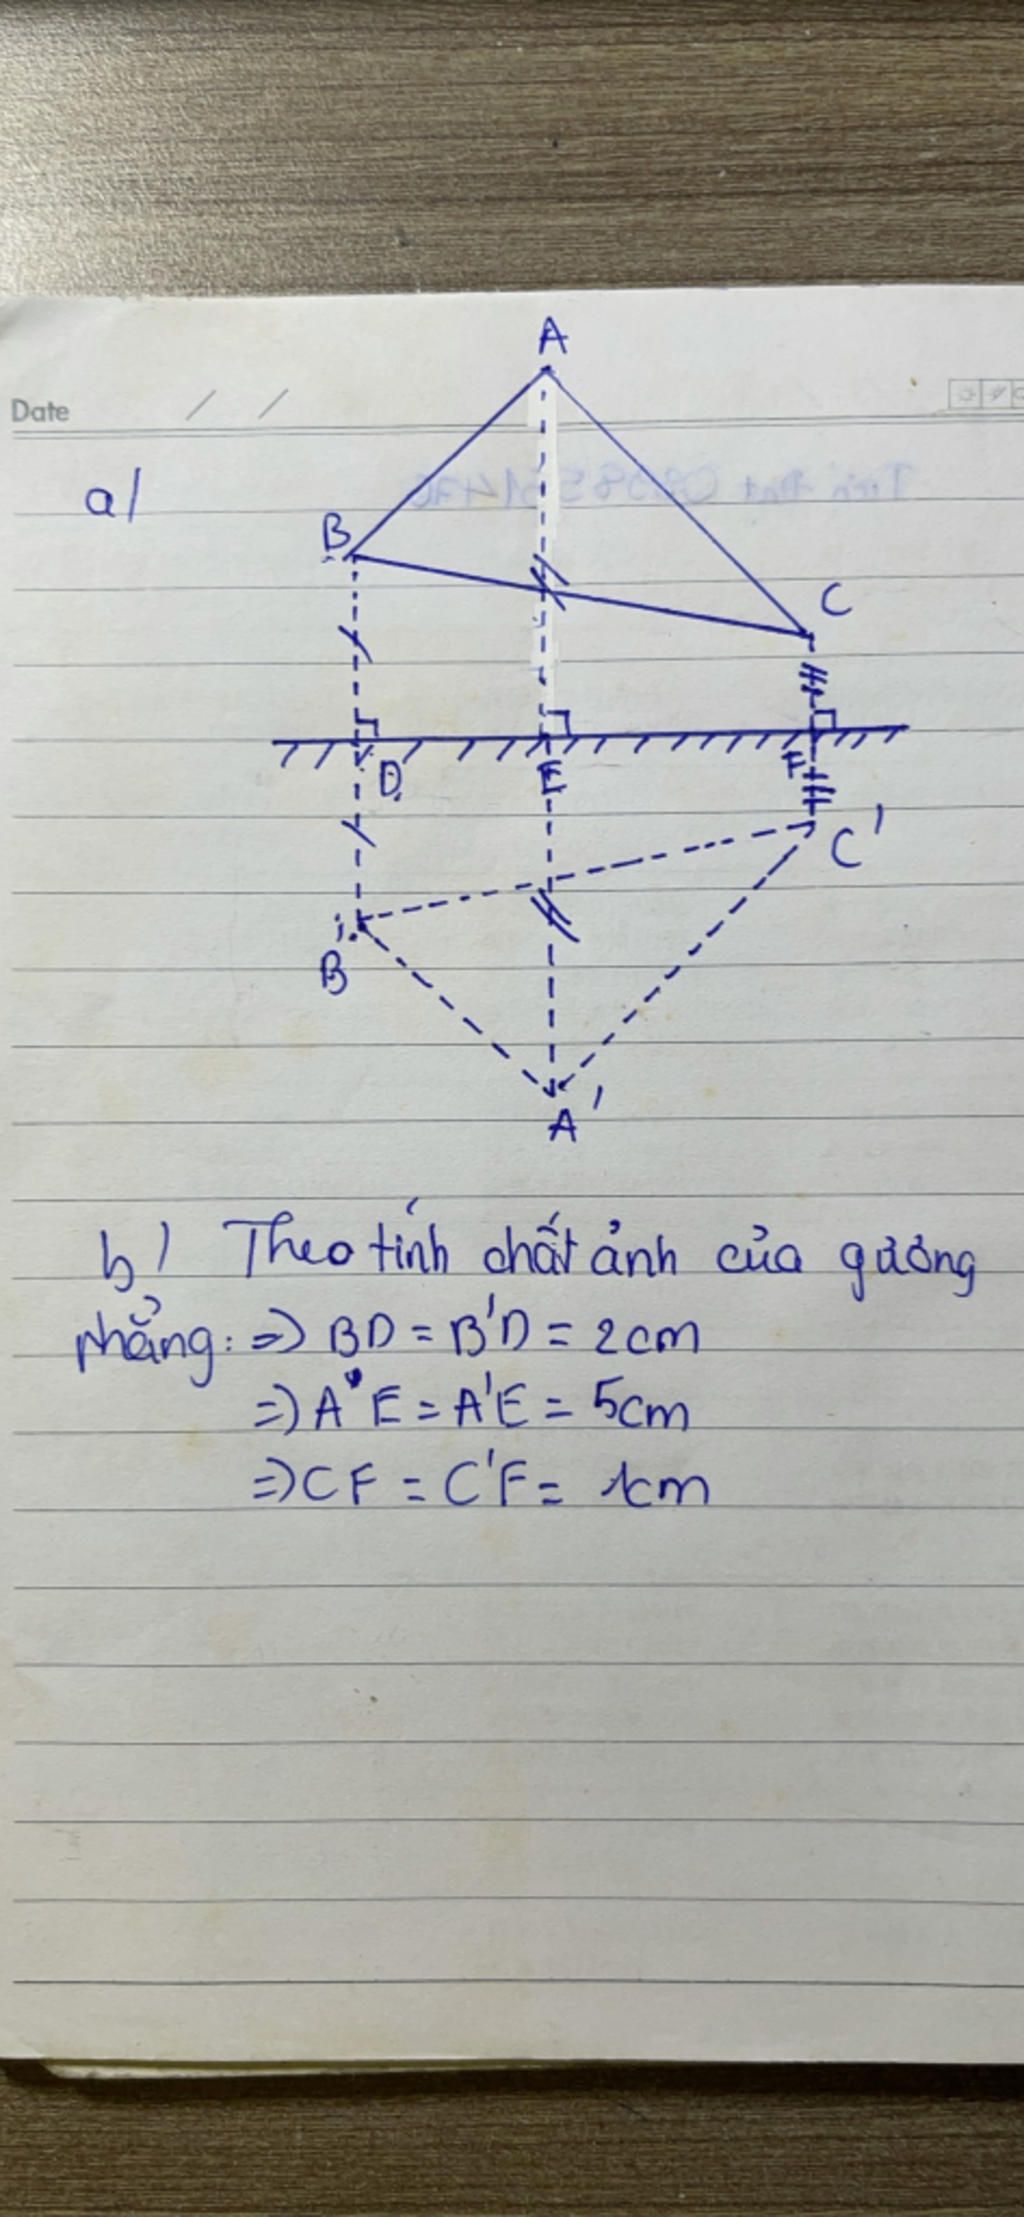 Date / /
A
a/
B
C
D
E
F
C'
B'
A'
b) Theo tính chất ảnh của gương
phẳng: => BD = B'D = 2cm
=> AE = A'E = 5cm
=> CF = C'F = 1cm